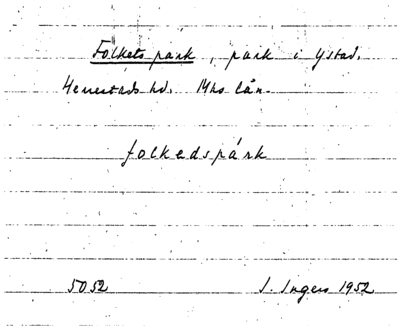 Folkets park, park i Ystad.
Herrestads hd. Mhs län.
folkedspárk
5052 I. Ingers 1952